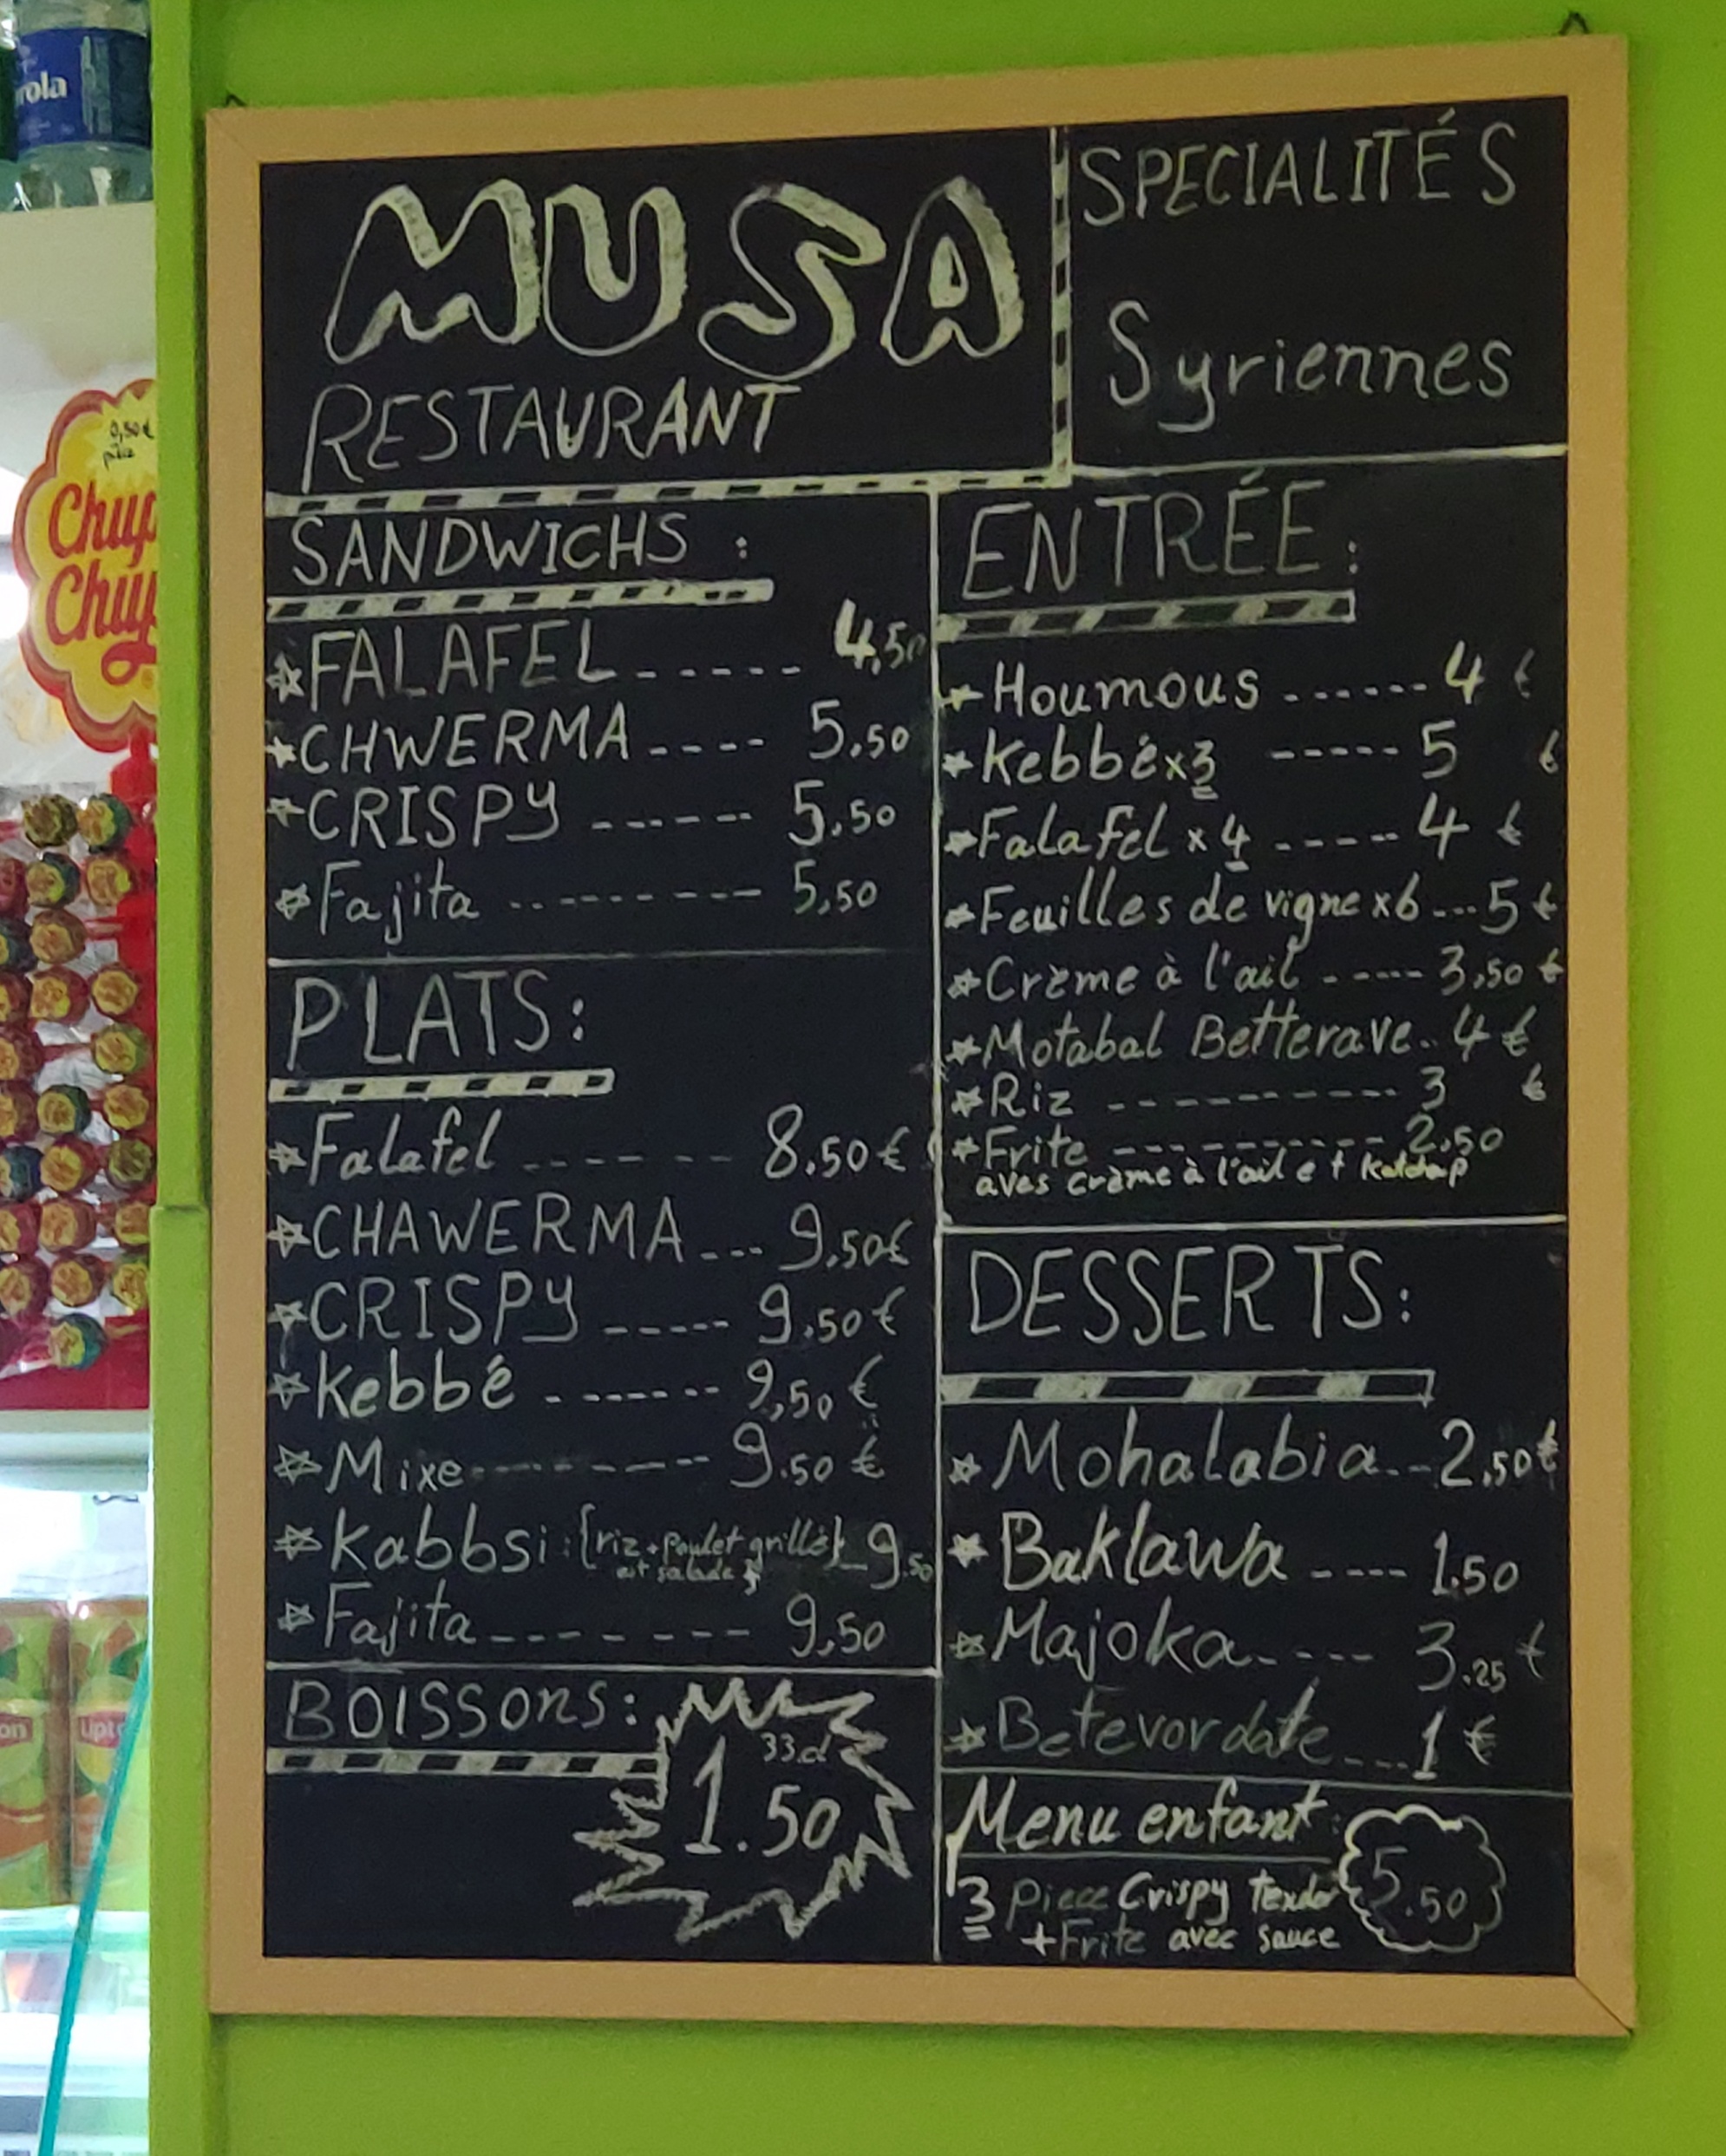 MUSA
RESTAURANT
SPECIALITÉS
Syriennes
SANDWICHS :
FALAFEL ------ 4,50
CHWERMA ---- 5.50
CRISPY ------ 5.50
Fajita --------- 5,50
PLATS:
Falafel ------- 8.50€
CHAWERMA --- 9.50€
CRISPY ----- 9.50€
Kebbé ------ 9,50€
Mixe -------- 9.50€
Kabbsi : {riz + Poulet grillé} 9.50
et salade}
Fajita ------- 9,50
BOISSOnS:
33.cl
1.50
ENTRÉE:
Houmous ------ 4 €
Kebbé x3 ----- 5 €
Falafel x 4 ----- 4 €
Feuilles de vigne x6 --- 5 €
Crème à l'ail ---- 3,50 €
Motabal Betterave.. 4 €
Riz --------- 3 €
Frite --------- 2.50
aves crème à l'ail et
DESSERTS:
Mohalabia --- 2,50€
Baklawa ---- 1.50
Majoka ---- 3.25 €
Betevordate --- 1 €
Menu enfant :
5.50
3 piece Crispy
+ Frite avec sauce
rola
0,50€
pièce
Chup
Chup
Lipto